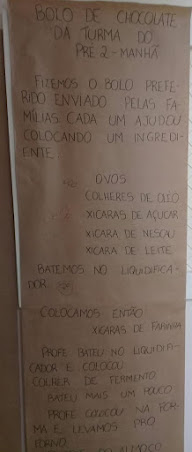 BOLO DE CHOCOLATE
DA TURMA DO
PRÉ 2 - MANHÃ
FIZEMOS O BOLO PREFE-
RIDO ENVIADO PELAS FA-
MÍLIAS. CADA UM AJUDOU
COLOCANDO UM INGREDI-
ENTE.
OVOS
COLHERES DE ÓLEO
XÍCARAS DE AÇÚCAR
XÍCARA DE NESCAU
XÍCARA DE LEITE
BATEMOS NO LIQUIDIFICA-
DOR.
COLOCAMOS ENTÃO
XÍCARAS DE FARINHA
PROFE BATEU NO LIQUIDIFI-
CADOR E COLOCOU
COLHER DE FERMENTO.
BATEU MAIS UM POUCO
PROFE COLOCOU NA FOR-
MA E LEVAMOS PRO
FORNO.
ALMOÇO